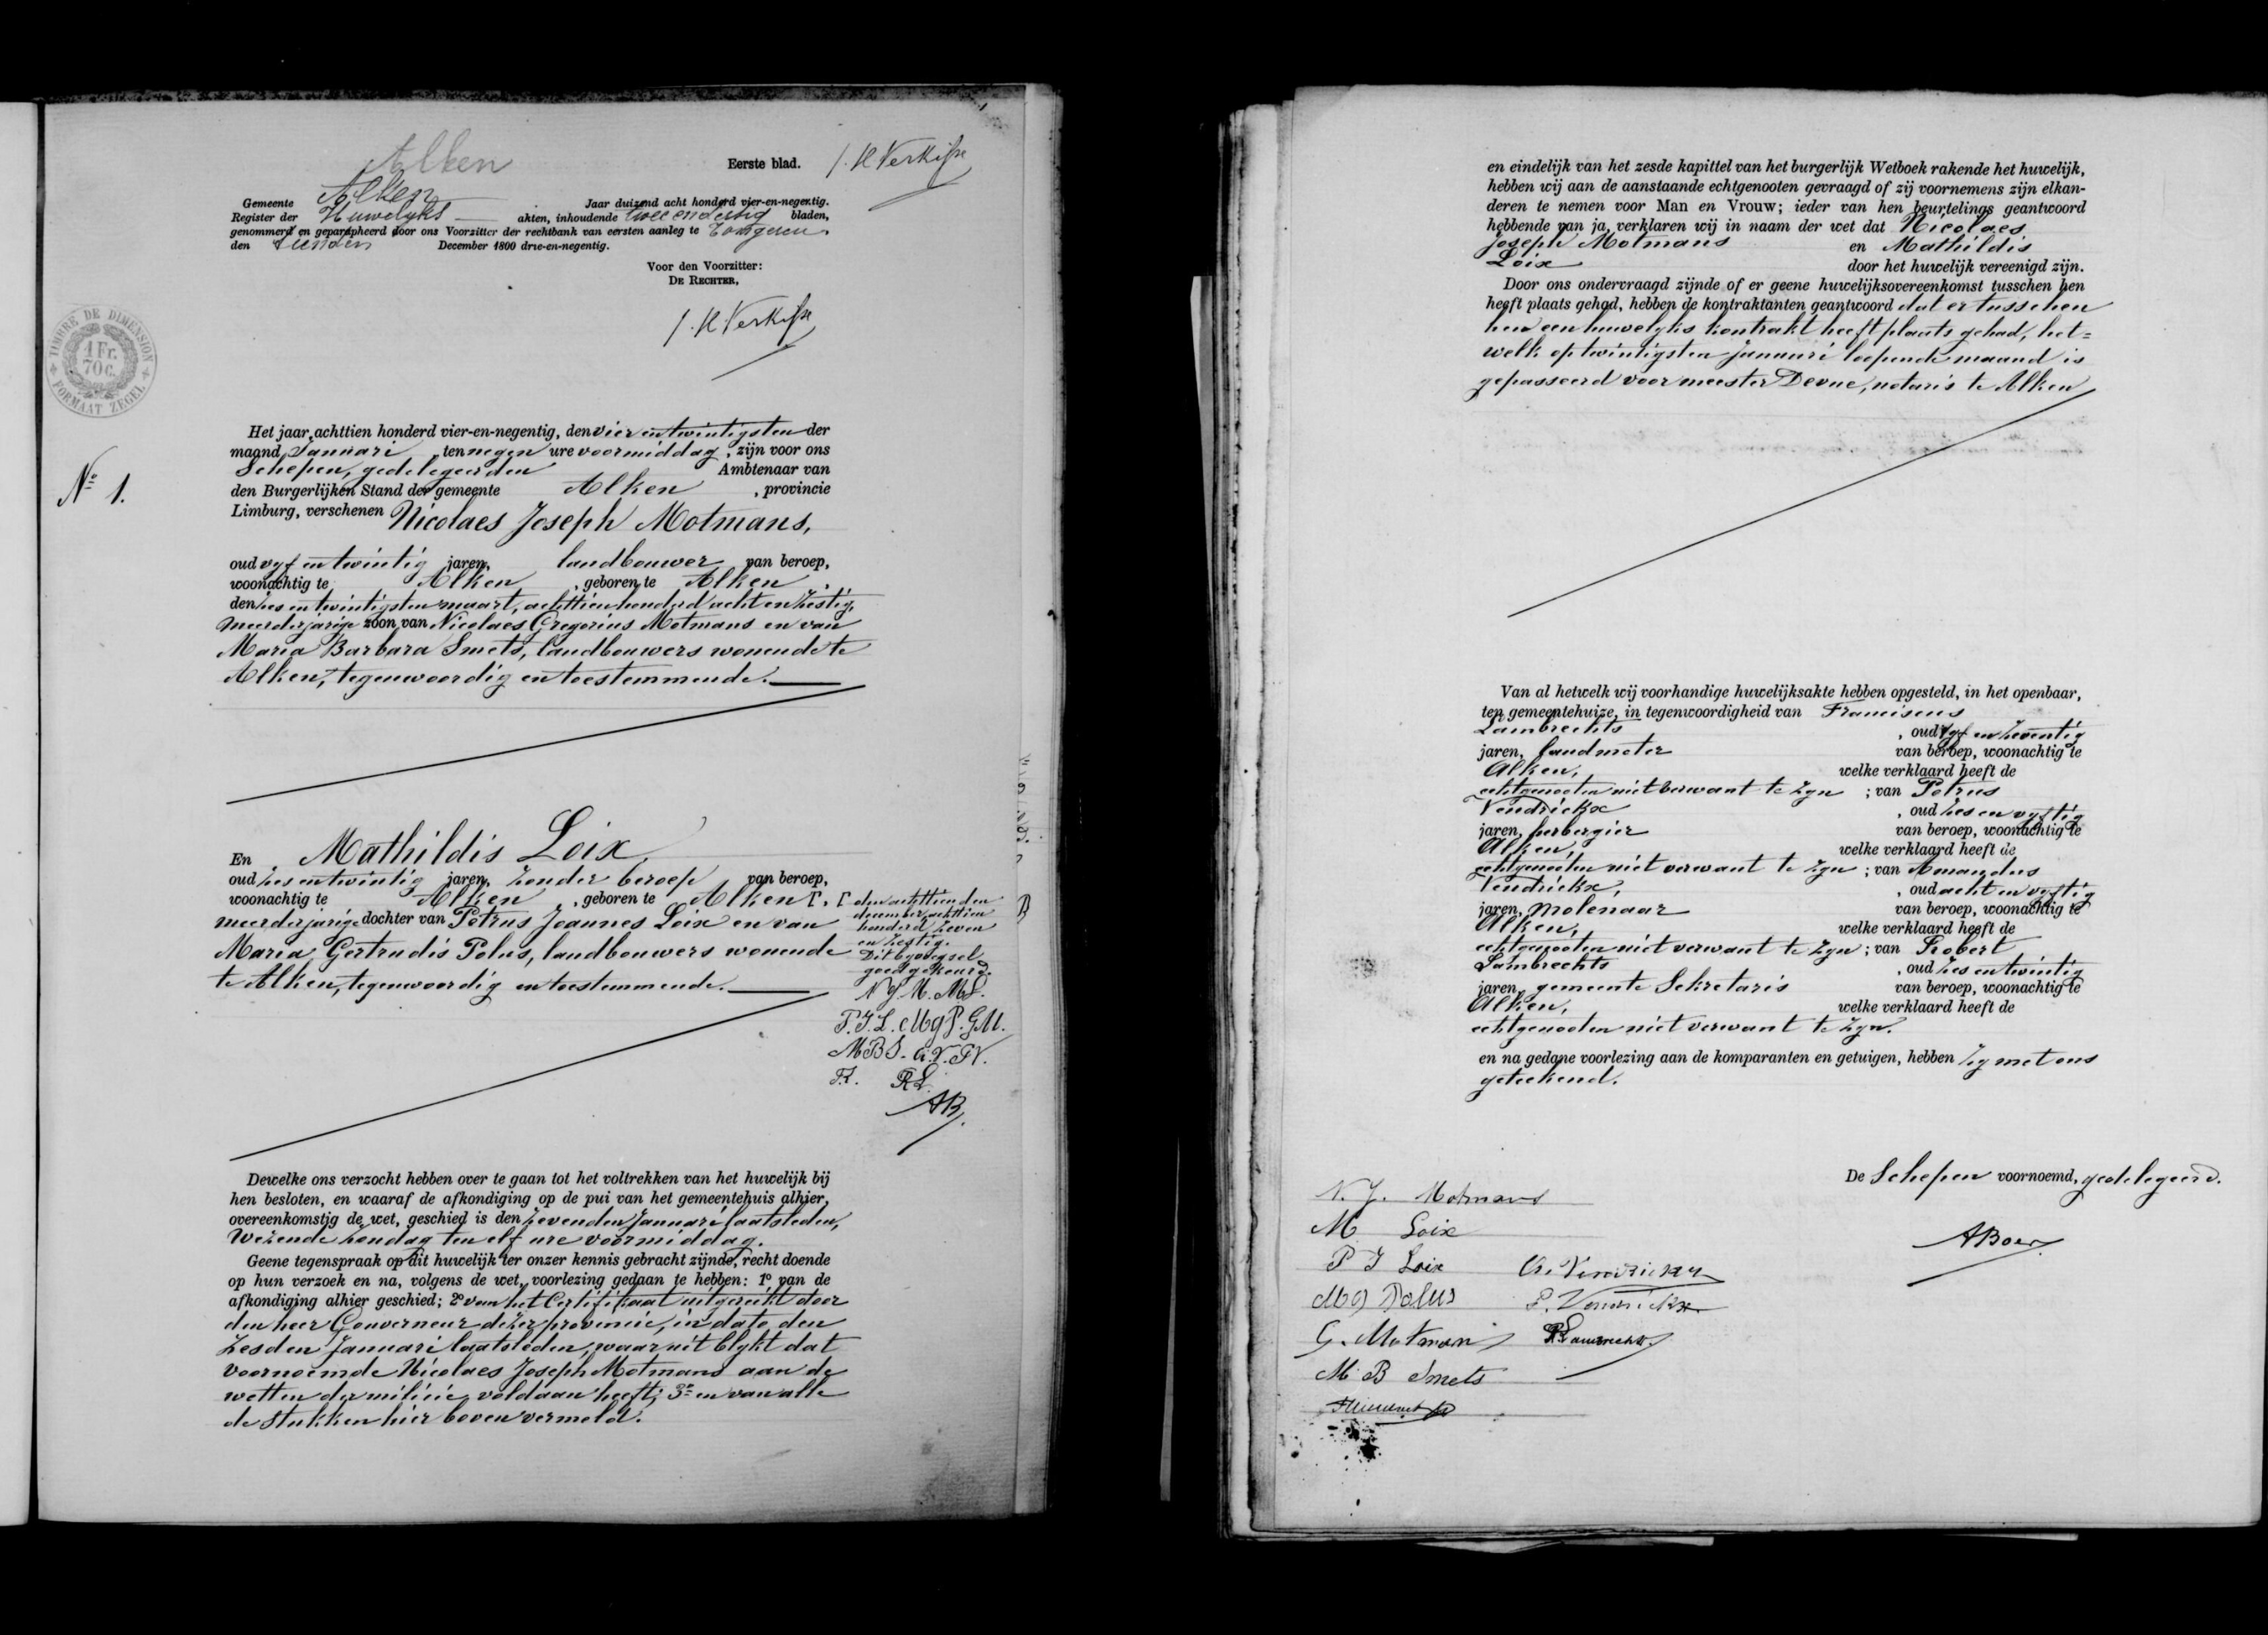 Alken
Eerste blad.
Gemeente Alken Jaar duizend acht honderd vier-en-negentig.
Register der Huwelyks akten, inhoudende twee en dertig bladen,
genommerd en geparapheerd door ons Voorzitter der rechtbank van eersten aanleg te Tongeren.
den December 1800 drie-en-negentig.
Voor den Voorzitter:
DE RECHTER,
TIMBRE DE DIMENSION
1 Fr.
70 c.
FORMAAT ZEGEL
Nº 1.
Het jaar achttien honderd vier-en-negentig, den vier en twintigsten der
maand Januari, ten negen ure voormiddag, zijn voor ons
Schepen, gedelegeerden Ambtenaar van
den Burgerlijken Stand der gemeente Alken, provincie
Limburg, verschenen Nicolaes Joseph Motmans,
oud vyf en twintig jaren, landbouwer van beroep,
woonachtig te Alken, geboren te Alken,
den zes en twintigsten maart, achttien honderd acht en zestig,
meerderjarige zoon van Nicolaes Gregorius Motmans en van
Maria Barbara Smets, landbouwers wonende te
Alken, tegenwoordig en toestemmende.
En Mathildis Loix,
oud zes en twintig jaren, zonder beroep van beroep,
woonachtig te Alken, geboren te Alken Γ,
meerderjarige dochter van Petrus Joannes Loix en van
Maria Gertrudis Polus, landbouwers wonende
te Alken, tegenwoordig en toestemmende.
Γ den achttienden
december achttien
honderd zeven
en zestig.
Dit byvoegsel
goedgekeurd.
N J M. M L.
P. J. L. M g P. G M.
M B S. A. V. P V.
F L. R L.
AB.
Dewelke ons verzocht hebben over te gaan tot het voltrekken van het huwelijk bij
hen besloten, en waaraf de afkondiging op de pui van het gemeentehuis alhier,
overeenkomstig de wet, geschied is den zevenden Januari laatsleden,
wezende zondag ten elf ure voormiddag.
Geene tegenspraak op dit huwelijk ter onzer kennis gebracht zijnde, recht doende
op hun verzoek en na, volgens de wet, voorlezing gedaan te hebben: 1º van de
afkondiging alhier geschied; 2º van het Certifikaat uitgereikt door
den heer Gouverneur dezer provincie, in dato den
zesden Januari laatsleden, waaruit blykt dat
voornoemde Nicolaes Joseph Motmans aan de
wetten der milicie voldaan heeft; 3º en van alle
de stukken hier boven vermeld.
en eindelijk van het zesde kapittel van het burgerlijk Wetboek rakende het huwelijk,
hebben wij aan de aanstaande echtgenooten gevraagd of zij voornemens zijn elkan-
deren te nemen voor Man en Vrouw; ieder van hen beurtelings geantwoord
hebbende van ja, verklaren wij in naam der wet dat Nicolaes
Joseph Motmans en Mathildis
Loix door het huwelijk vereenigd zijn.
Door ons ondervraagd zijnde of er geene huwelijksovereenkomst tusschen hen
heeft plaats gehad, hebben de kontraktanten geantwoord dat er tusschen
hen een huwelyks kontrakt heeft plaats gehad, het=
welk op twintigsten Januari loopende maand is
gepasseerd voor meester Devue, notaris te Alken
Van al hetwelk wij voorhandige huwelijksakte hebben opgesteld, in het openbaar,
ten gemeentehuize, in tegenwoordigheid van Franciscus
Lambrechts, oud vyf en zeventig
jaren, landmeter van beroep, woonachtig te
Alken, welke verklaard heeft de
echtgenooten niet verwant te zyn; van Petrus
Vendrickx, oud zes en vyftig
jaren, herbergier van beroep, woonachtig te
Alken, welke verklaard heeft de
echtgenooten niet verwant te zyn; van Amandus
Vendrickx, oud acht en vyftig
jaren, molenaar van beroep, woonachtig te
Alken, welke verklaard heeft de
echtgenooten niet verwant te zyn; van Robert
Lambrechts, oud zes en twintig
jaren, gemeente Sekretaris van beroep, woonachtig te
Alken, welke verklaard heeft de
echtgenooten niet verwant te zyn.
en na gedane voorlezing aan de komparanten en getuigen, hebben zy met ons
geteekend.
De Schepen voornoemd, gedelegeerd.
N. J. Motmans
M Loix
P J Loix A. Vendrickx
M g Polus P. Vendrickx
G. Motmans R Lambrechts
M B Smets